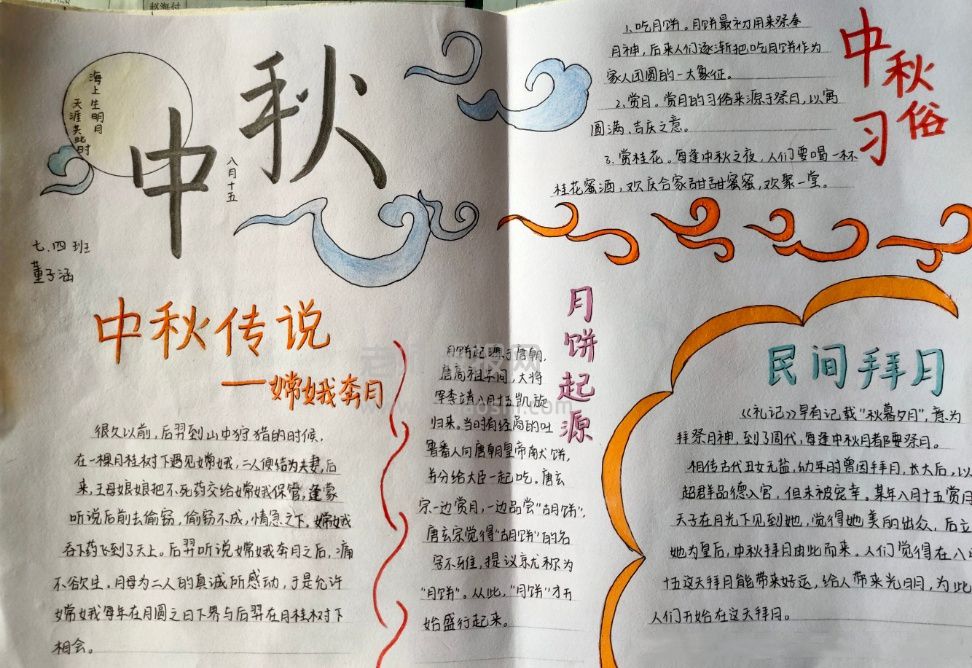 海上生明月
天涯共此时
中秋
八月十五
七.四班
董子涵
中秋传说
——嫦娥奔月
很久以前,后羿到山中狩猎的时候,
在一棵月桂树下遇见嫦娥,二人便结为夫妻,后
来,王母娘娘把不死药交给嫦娥保管,逢蒙
听说后前去偷窃,偷窃不成,情急之下,嫦娥
吞下药飞到了天上。后羿听说嫦娥奔月之后,痛
不欲生,月母为二人的真诚所感动,于是允许
嫦娥每年在月圆之日下界与后羿在月桂树下
相会。
中秋习俗
1、吃月饼。月饼最初用来祭奉
月神,后来人们逐渐把吃月饼作为
家人团圆的一大象征。
2.赏月。赏月的习俗来源于祭月,以寓
圆满、吉庆之意。
3.赏桂花。每逢中秋之夜,人们要喝一杯
桂花蜜酒,欢庆合家甜甜蜜蜜,欢聚一堂。
月饼起源
月饼起源于唐朝,
唐高祖年间,大将
军李靖八月十五凯旋
归来。当时有经商的吐
蕃人向唐朝皇帝献饼,
与分给大臣一起吃。唐玄
宗一边赏月,一边品尝“胡饼”,
唐玄宗觉得“胡饼”的名
字不雅,提议就称为
“月饼”。从此,“月饼”才开
始盛行起来。
民间拜月
《礼记》早有记载“秋暮夕月”,意为
拜祭月神,到了周代,每逢中秋月都要祭月。
相传古代丑女无盐,幼年时曾因拜月,长大后,以
超群品德入宫,但未被宠幸。某年八月十五赏月
天子在月光下见到她,觉得她美丽出众,后立
她为皇后,中秋拜月由此而来。人们觉得在八
十五这天拜月能带来好运,给人带来光明,为此
人们开始在这天拜月。